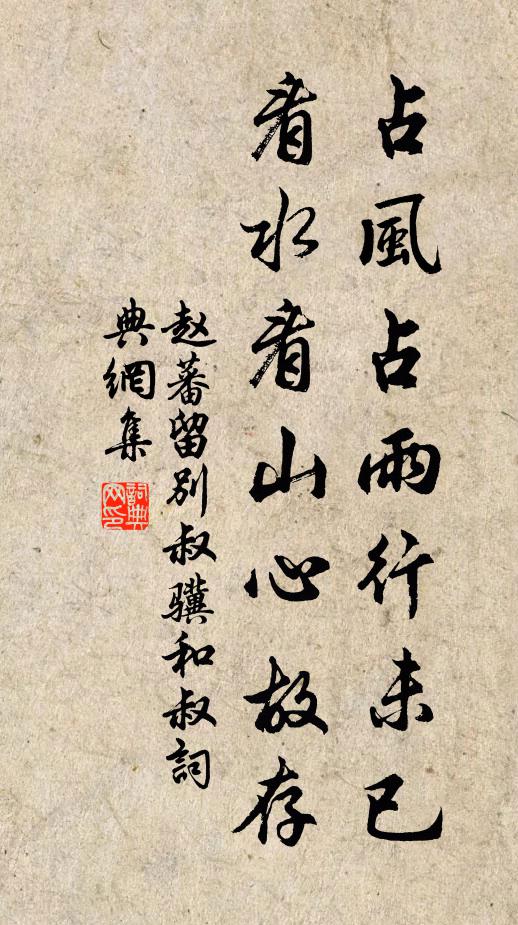 占風占雨行未已
看水看山心故存
赵蕃留别叔骥和叔詞
典網集
詞典网印